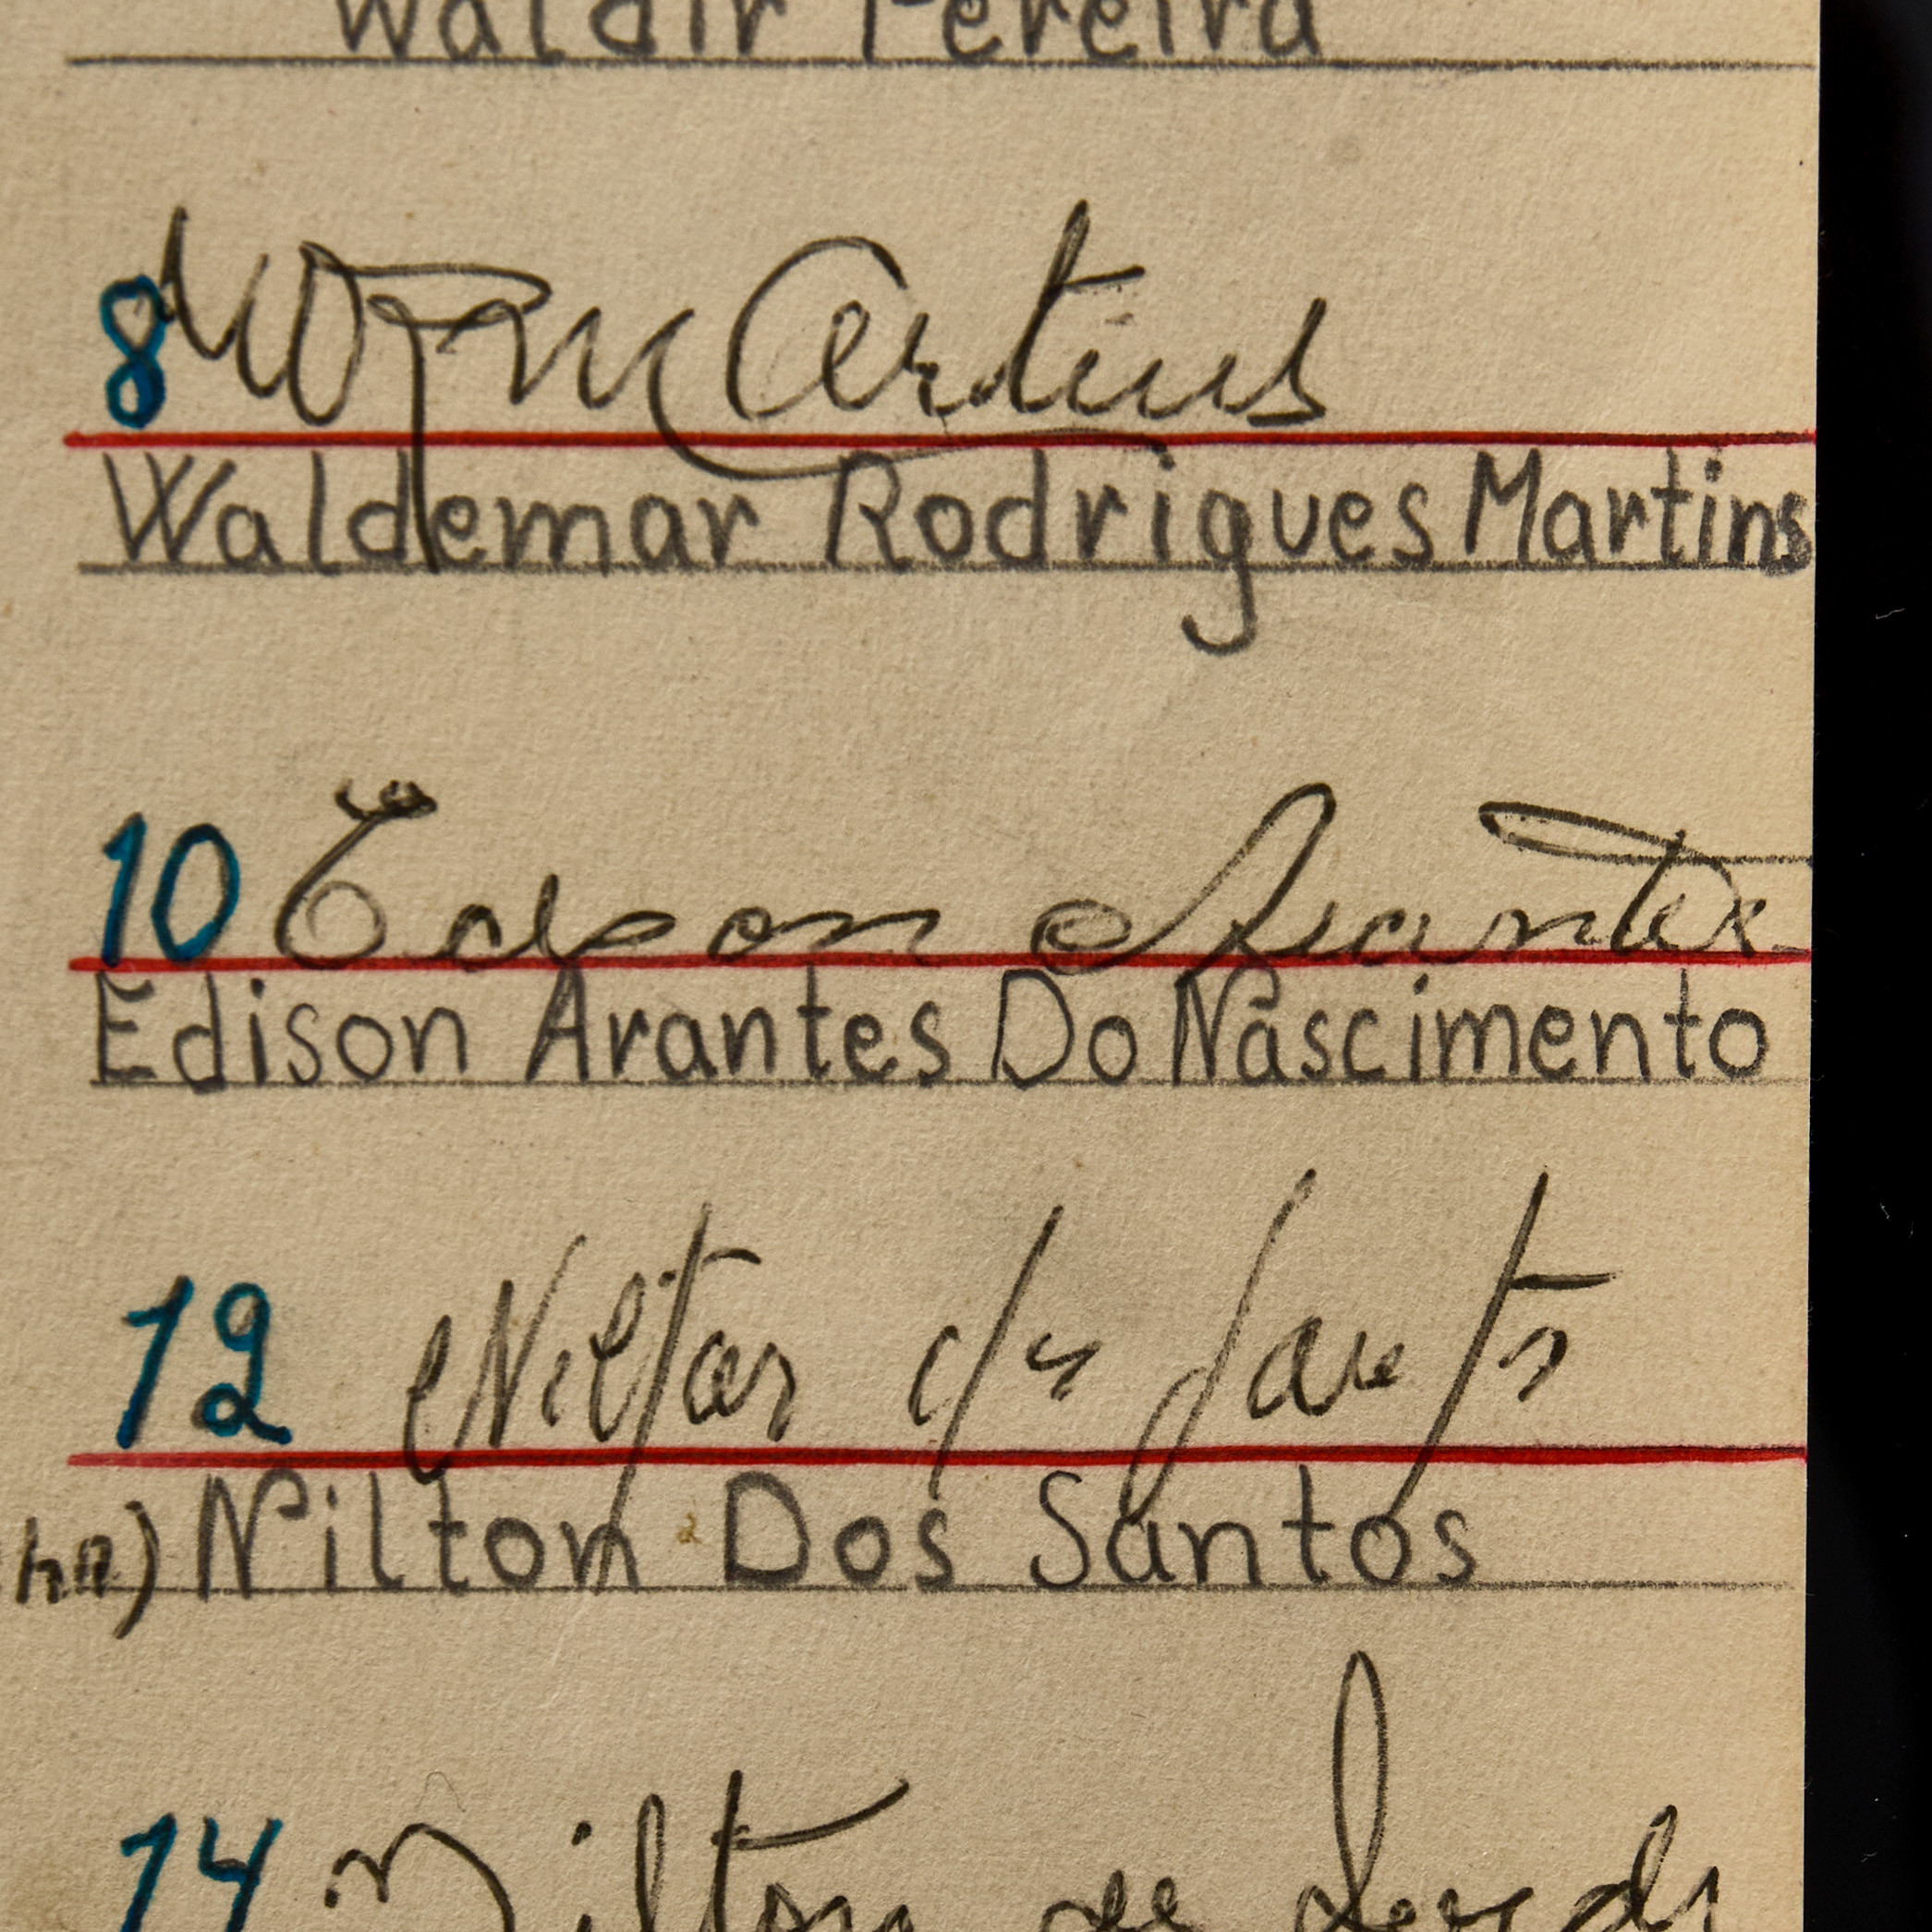 Waldir Pereira
8 WRMartins
Waldemar Rodrigues Martins
10 Edson Arantes
Edison Arantes Do Nascimento
12 Nilton dos Santos
Nilton Dos Santos
14 Nilton de